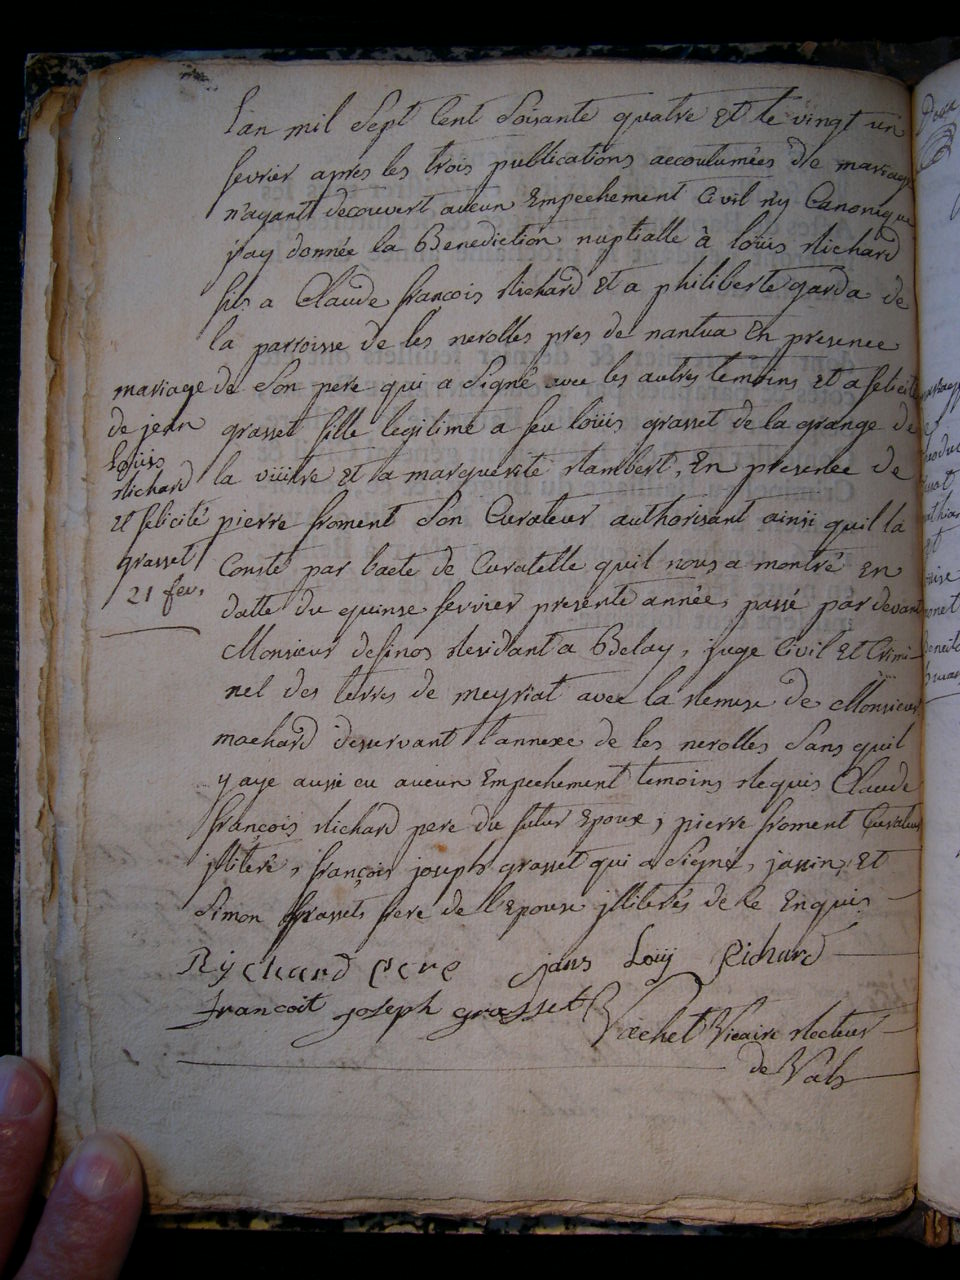 Lan mil Sept Cent Soisante quatre Et le vingt un
fevrier apres les trois publications accoutumées de mariage
n'ayant decouvert aucun Empechement Civil ny Canonique
j'ay donnée la Benediction nuptialle à loüis Richard
fils a Claude françois Richard Et a philiberte garda de
la parroisse de les nerolles pres de nantua En presence
de Son pere qui a Signé avec les autres temoins Et a felicité
grasset fille legitime a feu loüis grasset de la grange de
la Et a marguerite Rambert, En presence de
pierre froment Son Curateur authorisant ainsi quil la
Conste par l'acte de Curatelle quil nous a montré En
datte du quinse fevrier presente année, passé par devant
Monsieur desinos Residant a Belay, juge Civil Et Crimi-
nel des terres de meyriat avec la Remise de Monsieur
machard desservant l'annexe de les nerolles Sans quil
y aye aussi eu aucun Empechement temoins Requis Claude
françois Richard pere du futur Epoux, pierre froment Curateur
jlliteré, françois joseph grasset qui a Signé, janin, Et
Simon grassets frere de l'Epouse jlliterés de ce Enquis
mariage
de jean
Loüis
Richard
Et felicité
grasset
21 fev.
Rychard pere jans Loüj Richard
francoit joseph grasset Vicaire Recteur
de